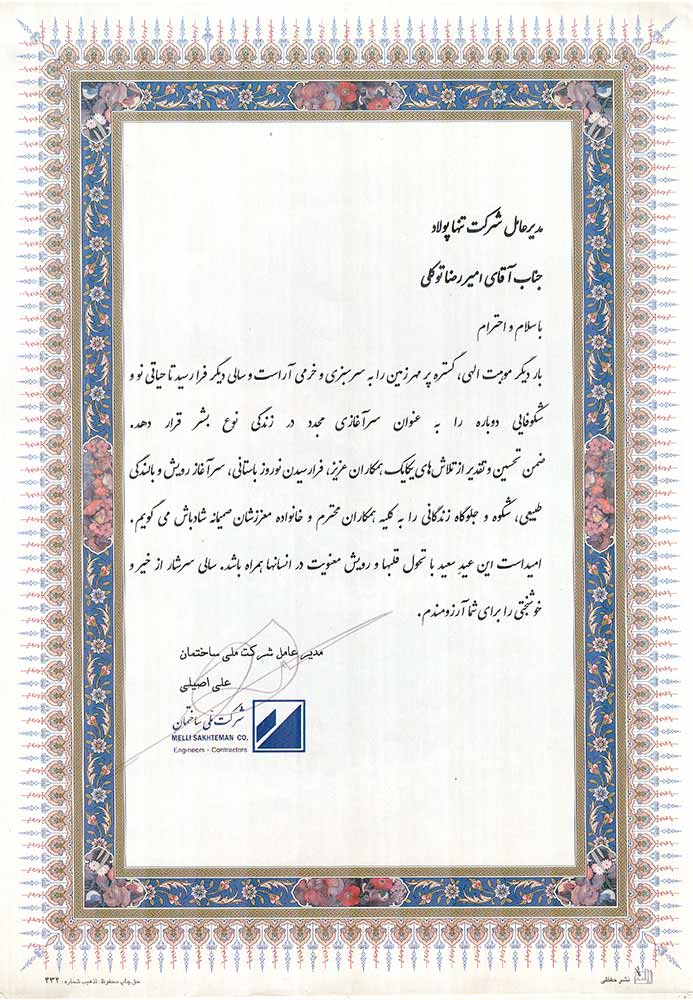 مدیر عامل شرکت تنها پولاد
جناب آقای امیر رضا توکلی
با سلام و احترام
بار دیگر موهبت الهی، گستره پر مهر زمین را به سرسبزی و خرمی آراست و سالی دیگر فرا رسید تا حیاتی نو و
شکوفایی دوباره را به عنوان سرآغازی مجدد در زندگی نوع بشر قرار دهد.
ضمن تحسین و تقدیر از تلاش های یکایک همکاران عزیز، فرا رسیدن نوروز باستانی، سرآغاز رویش و بالندگی
طبیعی، شکوه و جلوگاه زندگانی را به کلیه همکاران محترم و خانواده معززشان صمیمانه شادباش می گویم.
امید است این عید سعید با تحول قلبها و رویش معنویت در انسانها همراه باشد. سالی سرشار از خیر و
خوشبختی را برای شما آرزومندم.
مدیر عامل شرکت ملی ساختمان
علی اصیلی
شرکت ملی ساختمان
MELLI SAKHTEMAN CO.
Engineers - Contractors
نشر حفظی
حق چاپ محفوظ. تذهیب شماره: ۴۳۲